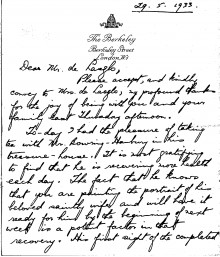 29. 5. 1933.
The Berkeley
Berkeley Street
London W1
Dear Mr. de Laszlo,
Please accept, and kindly
convey to Mrs de Laszlo, my profound thanks
for the joy of being with you and your
family last Thursday afternoon.
To-day I had the pleasure of taking
tea with Mr. in his
treasure-house. It is most gratifying
to find that he is recovering more
each day. The fact that he knows
that you are painting the portrait of his
beloved saintly wife and will have it
ready for him by the beginning of next
week is a potent factor in that
recovery. His first sight of the completed